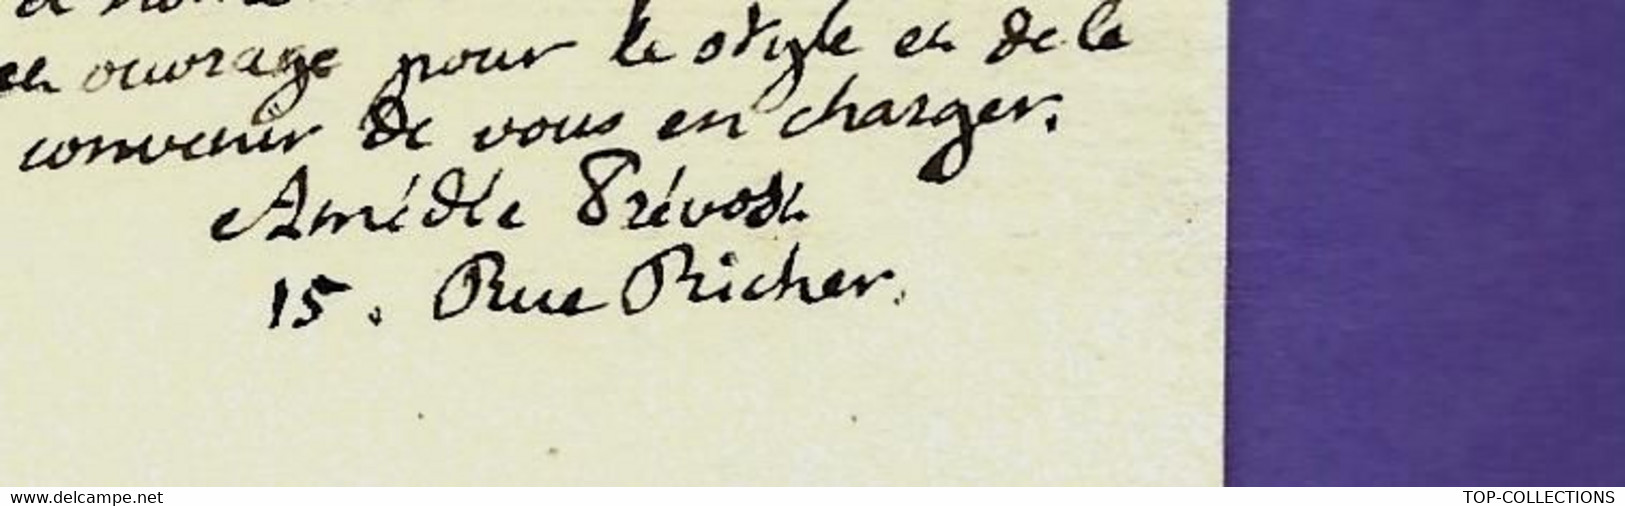 ouvrage pour le style et de le
convenir de vous en charger.
Amédée Prévost
15. Rue Richer.
www.delcampe.net
TOP-COLLECTIONS